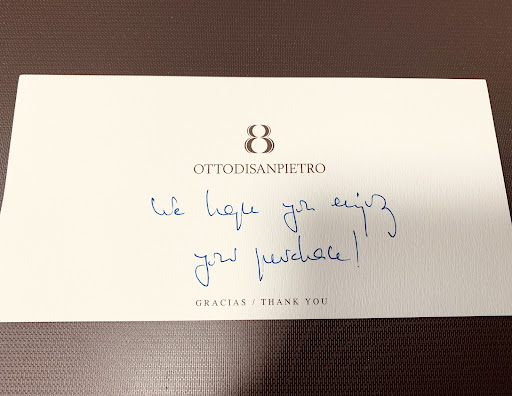 8
OTTODISANPIETRO
We hope you enjoy
your purchase!
GRACIAS / THANK YOU